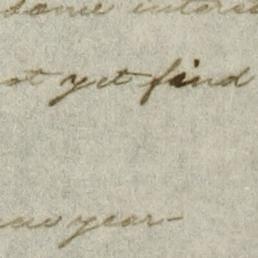 some interes
ot yet find
new year-